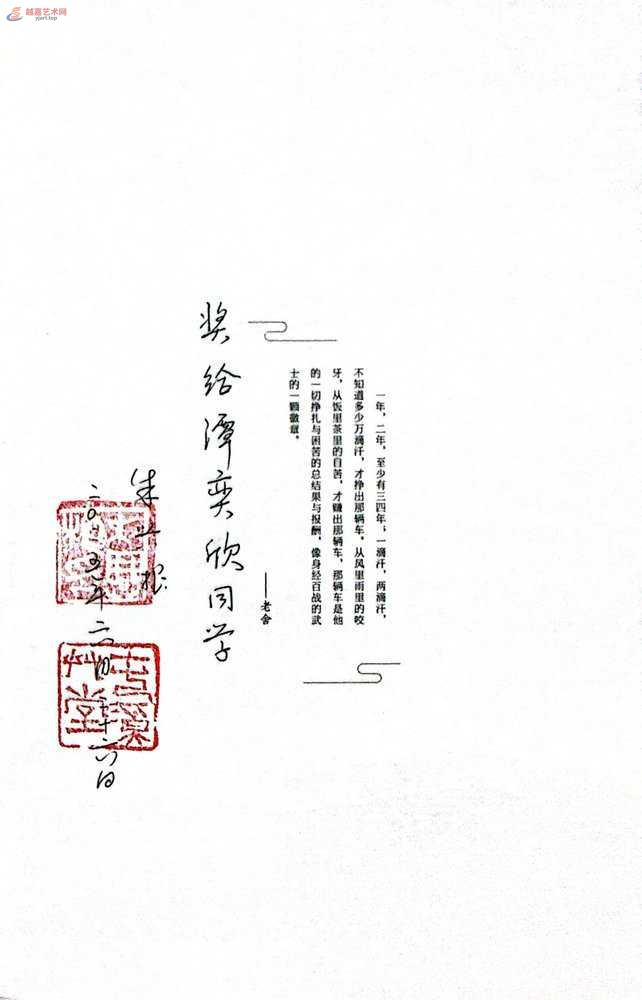 越嘉艺术网
yjart.top
一年，二年，至少有三四年；一滴汗，两滴汗，
不知道多少万滴汗，才挣出那辆车。从风里雨里的咬
牙，从饭里茶里的自苦，才赚出那辆车。那辆车是他
的一切挣扎与困苦的总结果与报酬，像身经百战的武
士的一颗徽章。
——老舍
奖给潭奕欣同学
朱 根
二〇二五年二月二十六日